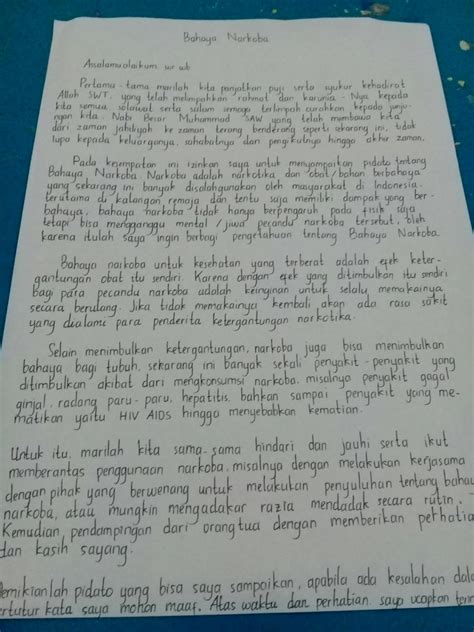 Bahaya Narkoba
Assalamualaikum wr wb
Pertama-tama marilah kita panjatkan puji serta syukur kehadirat
Allah SWT, yang telah melimpahkan rahmat dan karunia-Nya kepada
kita semua, solawat serta salam semoga terlimpah curahkan kepada junju-
ngan kita. Nabi Besar Muhammad SAW yang telah membawa kita
dari zaman jahiliyah ke zaman terang benderang seperti sekarang ini, tidak
lupa kepada keluarganya, sahabatnya dan pengikutnya hingga akhir zaman.
Pada kesempatan ini izinkan saya untuk menyampaikan pidato tentang
Bahaya Narkoba. Narkoba adalah narkotika dan obat/bahan berbahaya
yang sekarang ini banyak disalahgunakan oleh masyarakat di Indonesia.
terutama di kalangan remaja dan tentu saja memiliki dampak yang ber-
bahaya, bahaya narkoba tidak hanya berpengaruh pada fisik saja
tetapi bisa mengganggu mental / jiwa pecandu narkoba tersebut, oleh
karena itulah saya ingin berbagi pengetahuan tentang Bahaya Narkoba.
Bahaya narkoba untuk kesehatan yang terberat adalah efek keter-
gantungan obat itu sendiri. Karena dengan efek yang ditimbulkan itu sendiri
bagi para pecandu narkoba adalah keinginan untuk selalu memakainya
secara berulang. Jika tidak memakainya kembali akan ada rasa sakit
yang dialami para penderita ketergantungan narkotika.
Selain menimbulkan ketergantungan, narkoba juga bisa menimbulkan
bahaya bagi tubuh, sekarang ini banyak sekali penyakit-penyakit yang
ditimbulkan akibat dari mengkonsumsi narkoba, misalnya penyakit gagal
ginjal, radang paru-paru, hepatitis, bahkan sampai penyakit yang me-
matikan yaitu HIV AIDS hingga menyebabkan kematian.
Untuk itu, marilah kita sama-sama hindari dan jauhi serta ikut
memberantas penggunaan narkoba, misalnya dengan melakukan kerjasama
dengan pihak yang berwenang untuk melakukan penyuluhan tentang bahay
narkoba, atau mungkin mengadakar razia mendadak secara rutin.
Kemudian, pendampingan dari orangtua dengan memberikan perhatia
dan kasih sayang.
Demikianlah pidato yang bisa saya sampaikan, apabila ada kesalahan dala
ertutur kata saya mohon maaf. Atas waktu dan perhatian saya ucapkan teri